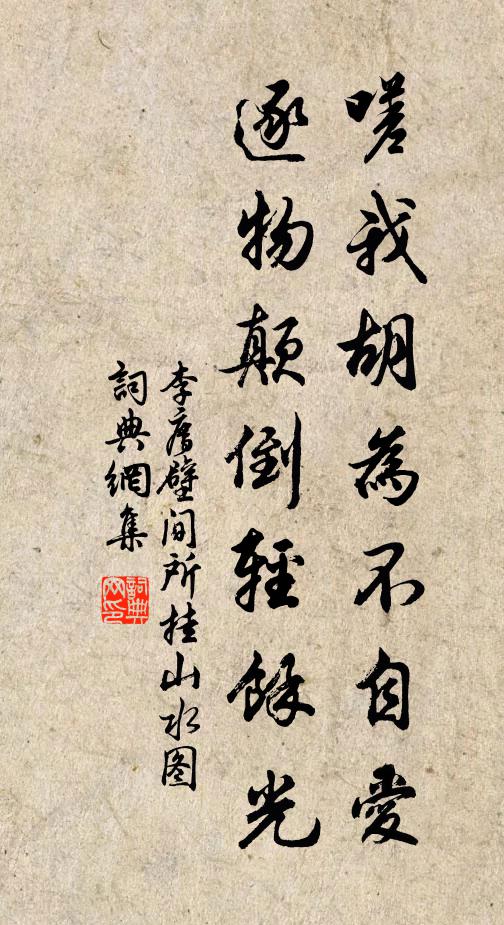 嗟我胡為不自愛
逐物顛倒輕餘光
李唐壁间所挂山水图
詞典網集
詞典
网印